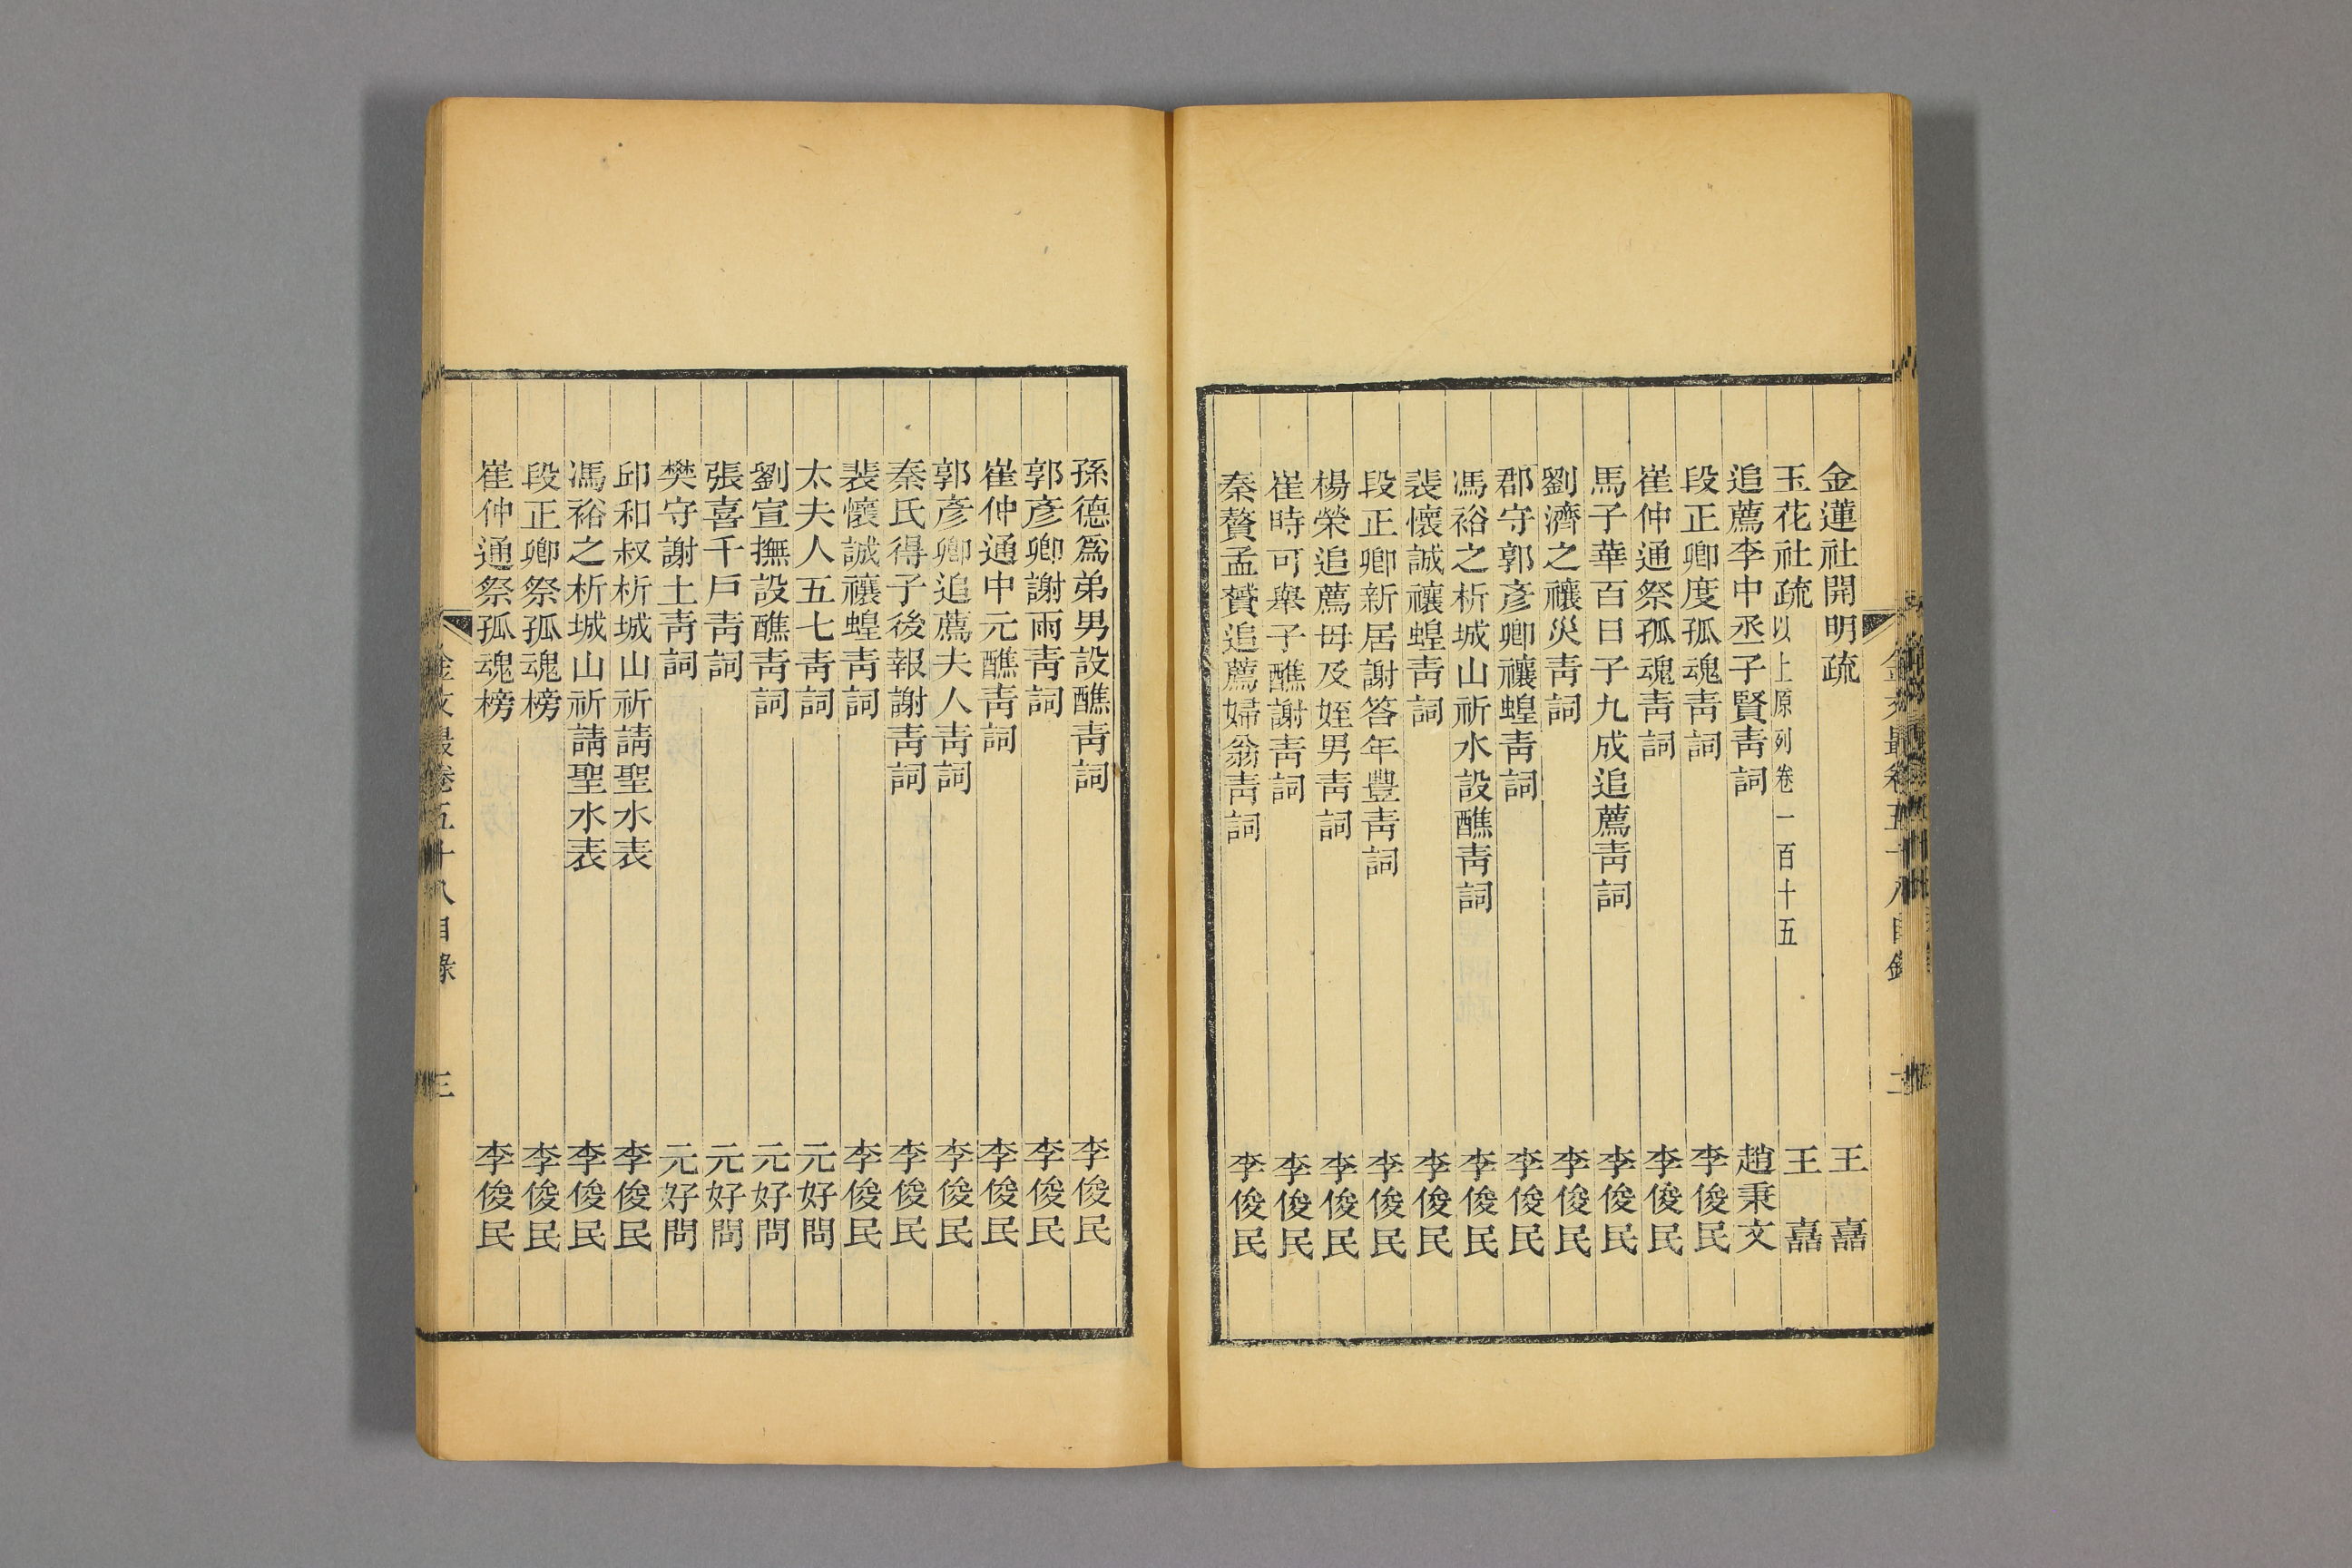 金蓮社開明疏 王嘉
玉花社疏 以上原列卷一百十五 王嘉
追薦李中丞子賢靑詞 趙秉文
段正卿度孤魂靑詞 李俊民
崔仲通祭孤魂靑詞 李俊民
馬子華百日子九成追薦靑詞 李俊民
劉濟之禳災靑詞 李俊民
郡守郭彥卿禳蝗靑詞 李俊民
馮裕之析城山祈水設醮靑詞 李俊民
裴懷誠禳蝗靑詞 李俊民
段正卿新居謝答年豐靑詞 李俊民
楊榮追薦母及姪男靑詞 李俊民
崔時可舉子醮謝靑詞 李俊民
秦贅孟贇追薦婦翁靑詞 李俊民
孫德爲弟男設醮靑詞 李俊民
郭彥卿謝雨靑詞 李俊民
崔仲通中元醮靑詞 李俊民
郭彥卿追薦夫人靑詞 李俊民
秦氏得子後報謝靑詞 李俊民
裴懷誠禳蝗靑詞 李俊民
太夫人五七靑詞 元好問
劉宣撫設醮靑詞 元好問
張喜千戶靑詞 元好問
樊守謝土靑詞 元好問
邱和叔析城山祈請聖水表 李俊民
馮裕之析城山祈請聖水表 李俊民
段正卿祭孤魂榜 李俊民
崔仲通祭孤魂榜 李俊民
金文最卷五十八目錄 三